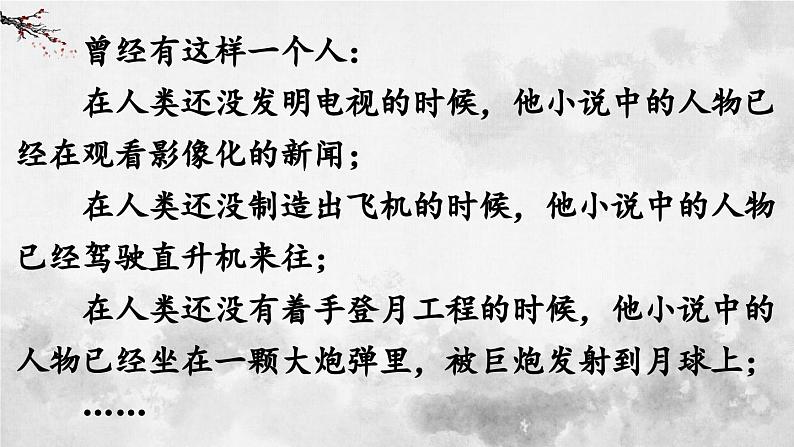 曾经有这样一个人：
在人类还没发明电视的时候，他小说中的人物已
经在观看影像化的新闻；
在人类还没制造出飞机的时候，他小说中的人物
已经驾驶直升机来往；
在人类还没有着手登月工程的时候，他小说中的
人物已经坐在一颗大炮弹里，被巨炮发射到月球上；
……